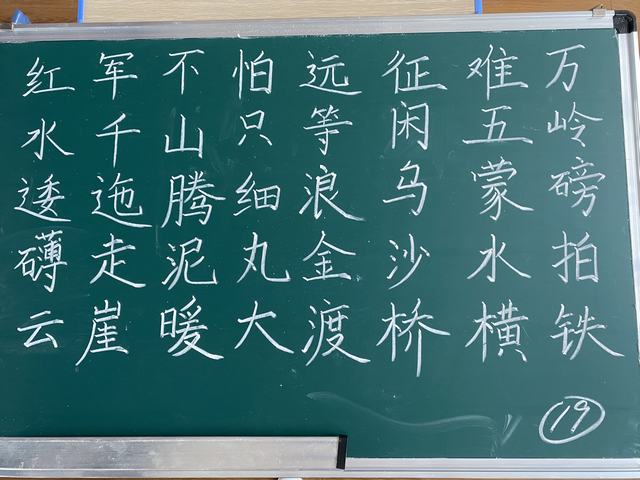 红军不怕远征难万
水千山只等闲五岭
逶迤腾细浪乌蒙磅
礴走泥丸金沙水拍
云崖暖大渡桥横铁
19